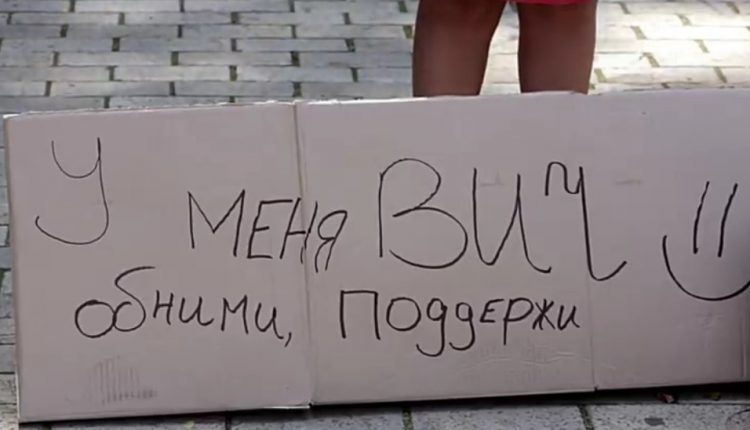 У меня ВИЧ =)
обними, поддержи